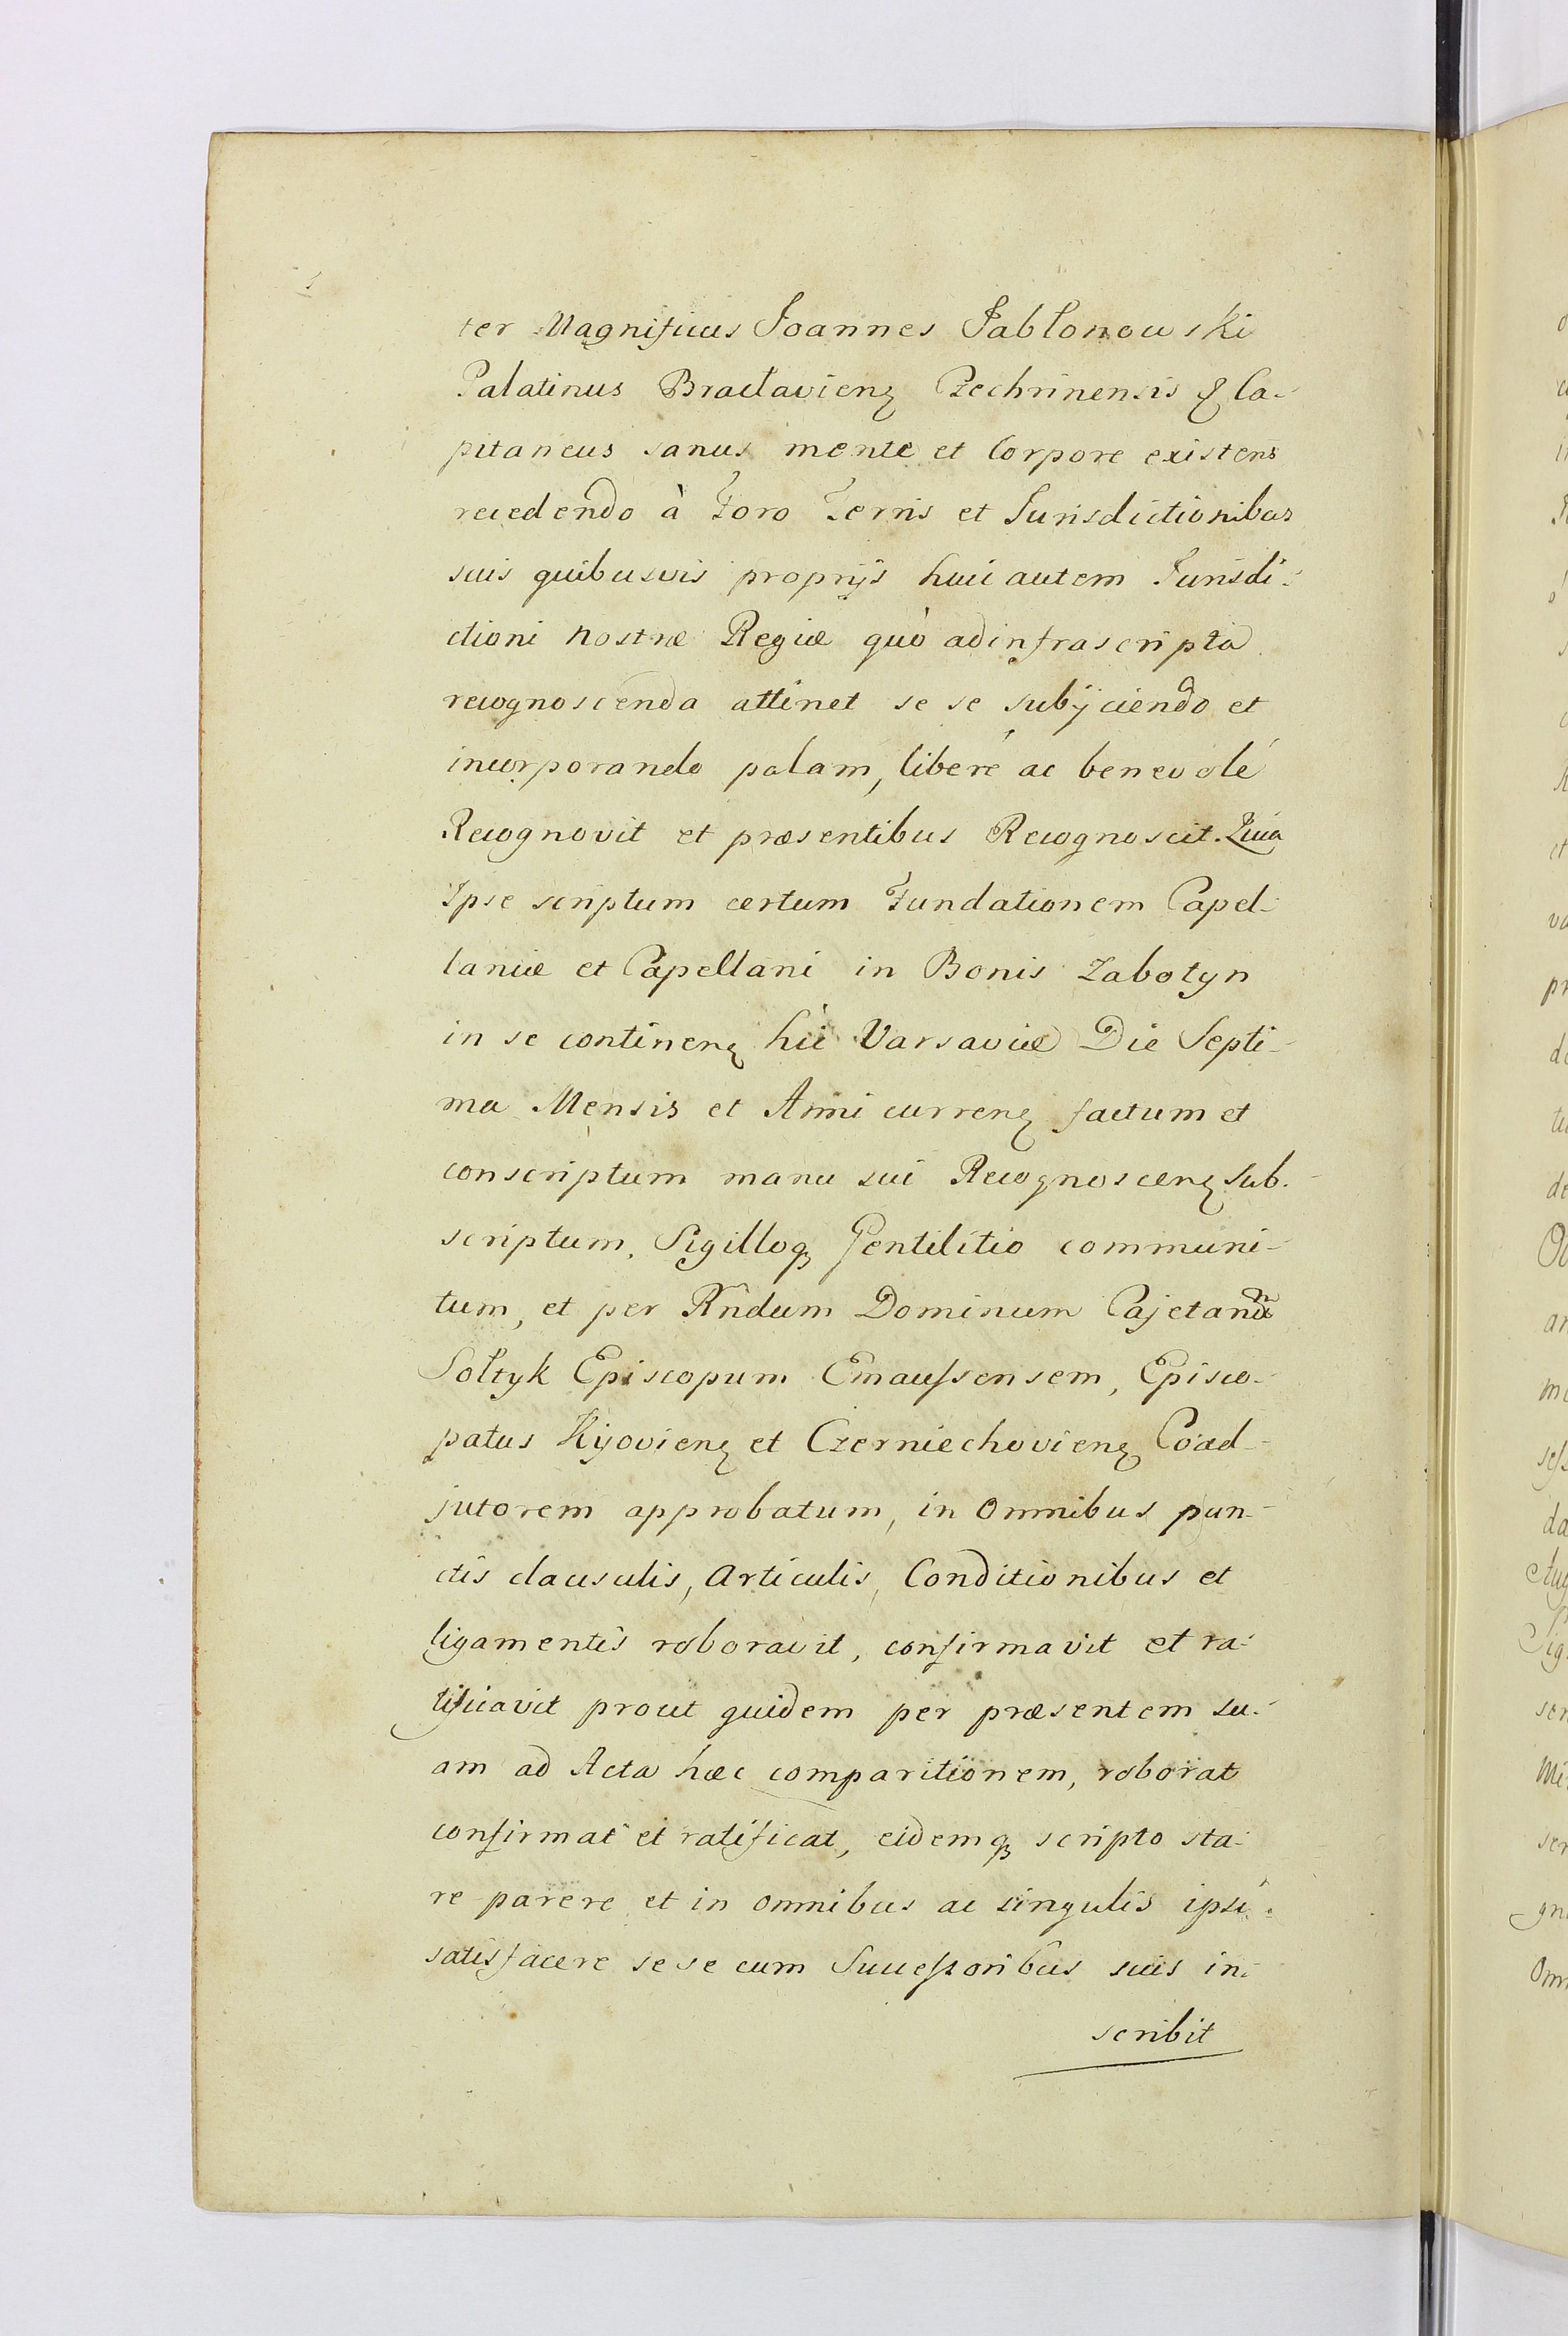 ter Magnificus Joannes Jabłonowski
Palatinus Braclavienꝫ Czechrinensis & Ca-
pitaneus sanus mente et Corpore existens
recedendo à Foro Terris et Jurisdictionibus
suis quibusvis proprijs huic autem Jurisdi-
ctioni nostræ Regiæ quò ad infrascripta
recognoscenda attinet se se subijciendo et
incorporando palam, liberé ac benevolé
Recognovit et præsentibus Recognoscit. Quia
Ipse scriptum certum Fundationem Capel-
laniæ et Capellani in Bonis Zabotyn
in se continenꝫ hìc Varsaviæ Die Septi-
ma Mensis et Anni currenꝫ factum et
conscriptum manu sui Recognoscenꝫ sub-
scriptum, Sigilloqꝫ Gentilitio communi-
tum, et per Rndum Dominum Cajetanũ
Sołtyk Episcopum Emaussensem, Episco-
patus Kijovienꝫ et Czerniechovienꝫ Coad-
jutorem approbatum, in Omnibus pun-
ctis clausulis, Articulis, Conditionibus et
ligamentis roboravit, confirmavit et ra-
tificavit prout quidem per præsentem su-
am ad Acta hæc comparitionem, roborat
confirmat et ratificat, eidemqꝫ scripto sta-
re parere et in omnibus ac singulis ipsi
satisfacere se se cum Successoribus suis in-
scribit